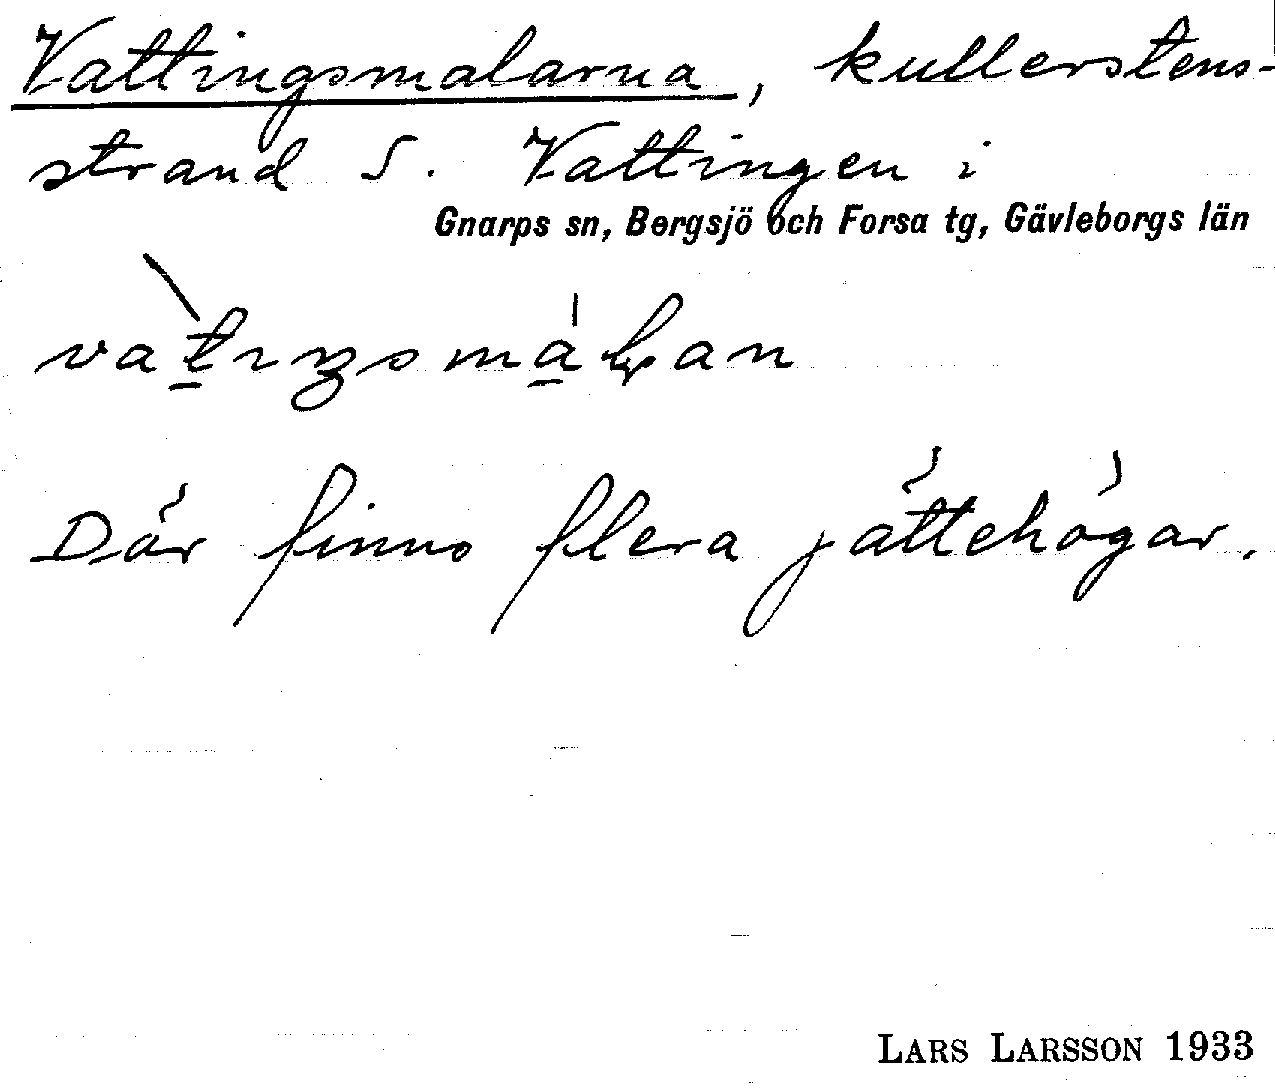 Vattingsmalarna, kullerstens-
strand S. Vattingen i
Gnarps sn, Bergsjö och Forsa tg, Gävleborgs län
Där finns flera jättehögar.
LARS LARSSON 1933